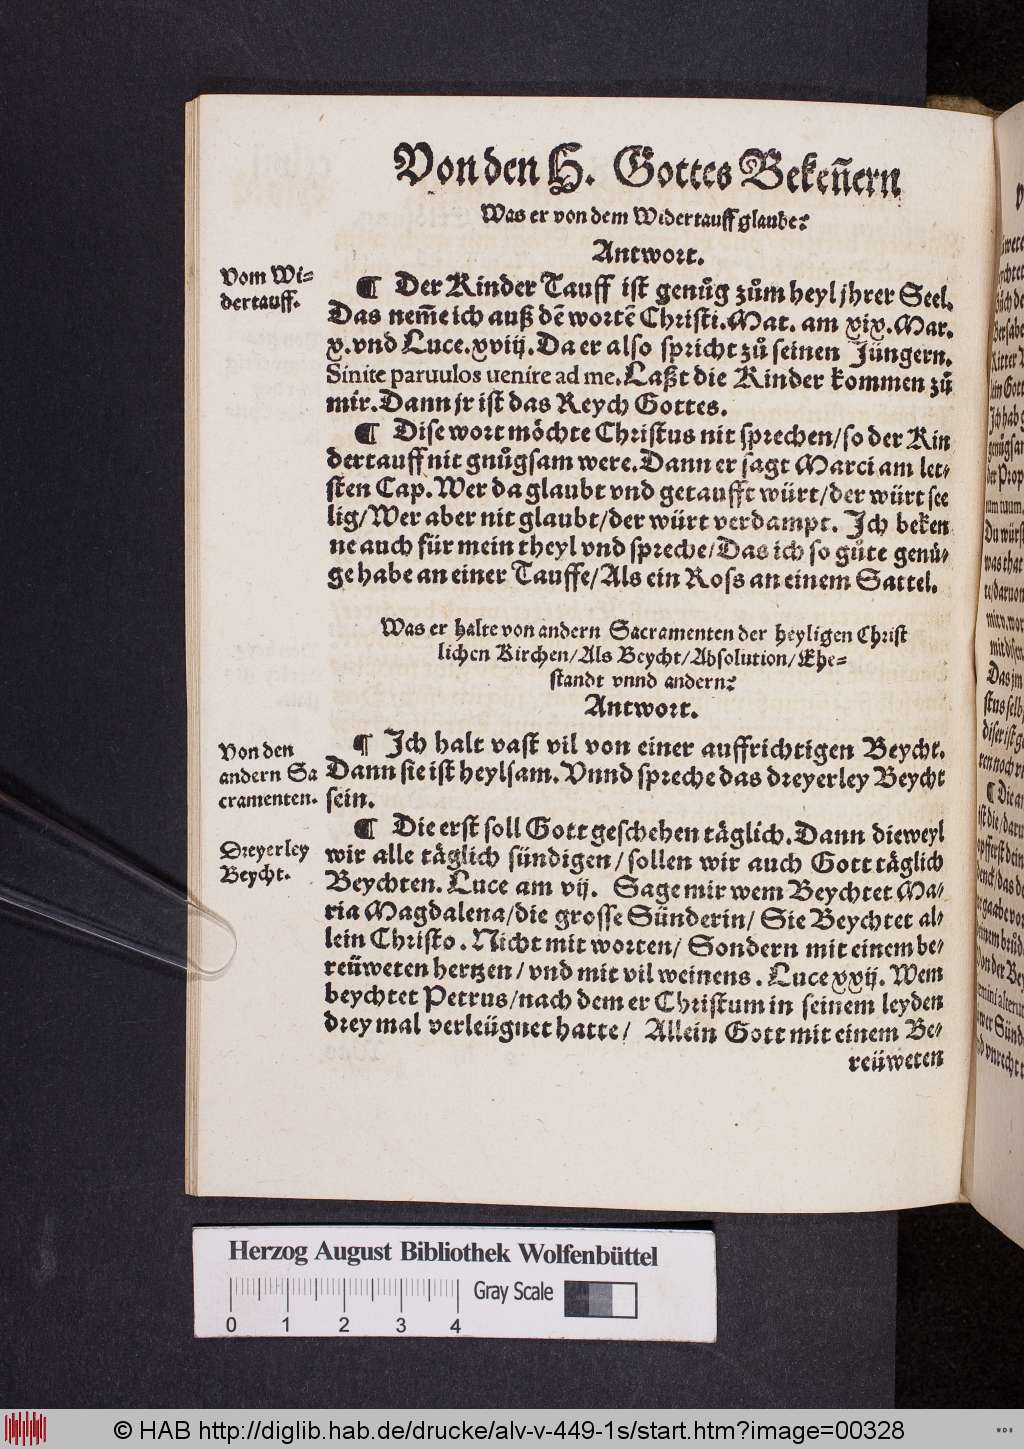 Von den H. Gottes Bekeñern
Was er von dem Widertauff glaube?
Antwort.
Vom Wi=
dertauff.
¶ Der Kinder Tauff ist genůg zům heyl jhrer Seel.
Das nem̃e ich auß dē wortē Christi. Mat. am xix. Mar.
x. vnd Luce. xviij. Da er also spricht zů seinen Jüngern.
Sinite paruulos uenire ad me. Laßt die Kinder kommen zů
mir. Dann jr ist das Reych Gottes.
¶ Dise wort möchte Christus nit sprechen/ so der Kin
dertauff nit gnůgsam were. Dann er sagt Marci am let=
sten Cap. Wer da glaubt vnd getaufft würt/ der würt see
lig/ Wer aber nit glaubt/ der würt verdampt. Ich beken
ne auch für mein theyl vnd spreche/ Das ich so gůte genů=
ge habe an einer Tauffe/ Als ein Ross an einem Sattel.
Was er halte von andern Sacramenten der heyligen Christ
lichen Kirchen/ Als Beycht/ Absolution/ Ehe=
standt vnnd andern?
Antwort.
Von den
andern Sa
cramenten.
¶ Ich halt vast vil von einer auffrichtigen Beycht.
Dann sie ist heylsam. Vnnd spreche das dreyerley Beycht
sein.
Dreyerley
Beycht.
¶ Die erst soll Gott geschehen täglich. Dann dieweyl
wir alle täglich sündigen/ sollen wir auch Gott täglich
Beychten. Luce am vij. Sage mir wem Beychtet Ma=
ria Magdalena/ die grosse Sünderin/ Sie Beychtet al=
lein Christo. Nicht mit worten/ Sondern mit einem be=
reüweten hertzen/ vnd mit vil weinens. Luce xxij. Wem
beychtet Petrus/ nach dem er Christum in seinem leyden
drey mal verleügnet hatte/ Allein Gott mit einem Be=
reüweten
Herzog August Bibliothek Wolfenbüttel
Gray Scale
0 1 2 3 4
© HAB http://diglib.hab.de/drucke/alv-v-449-1s/start.htm?image=00328